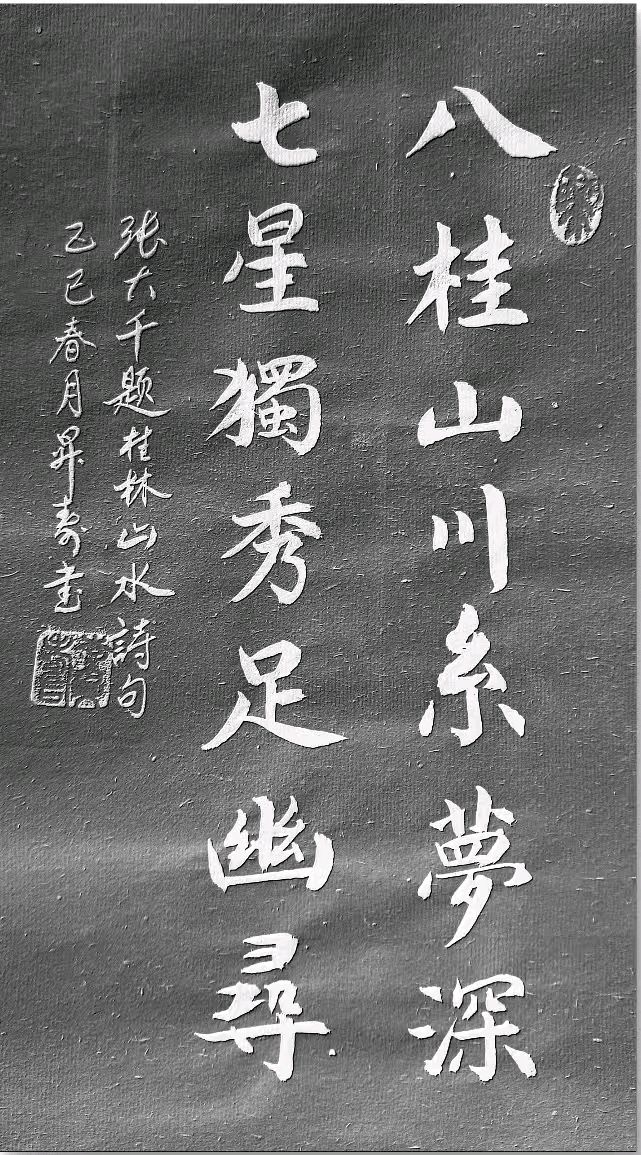 八桂山川系夢深
七星獨秀足幽尋
张大千题桂林山水詩句
乙巳春月昇寿书